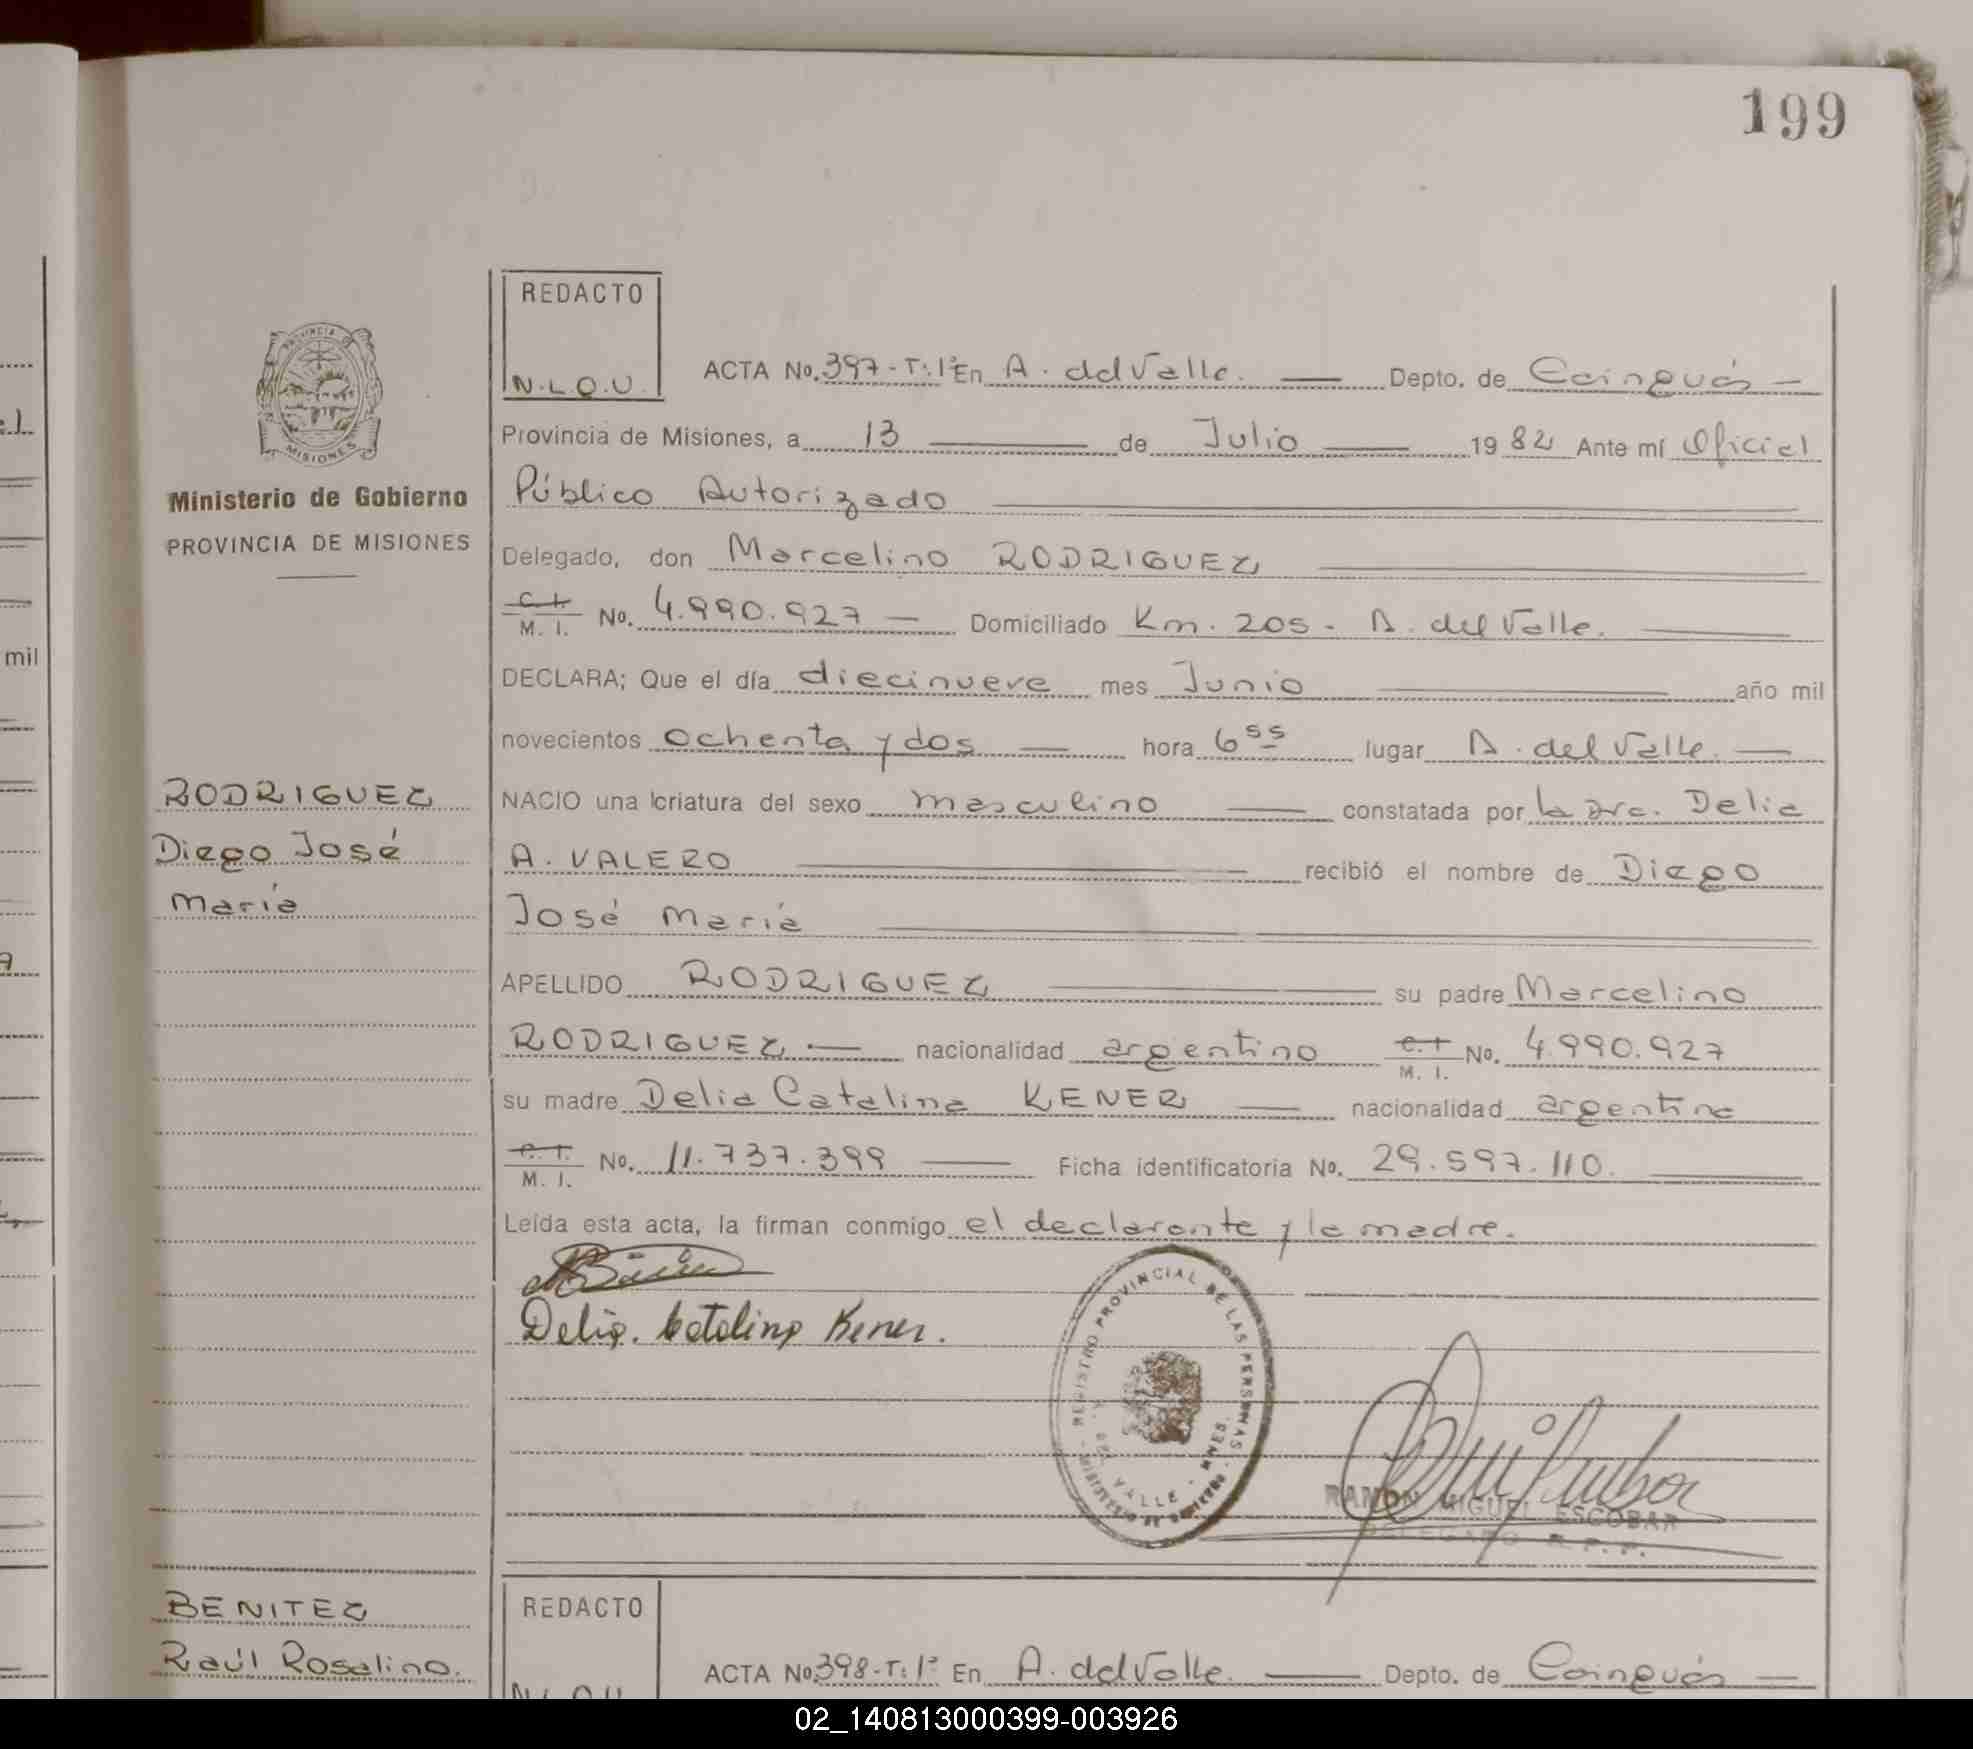 199
REDACTO
N.L.O.U.
PROVINCIA
MISIONES
Ministerio de Gobierno
PROVINCIA DE MISIONES
RODRIGUEZ
Diego José
María
ACTA No. 397-T:1º En A. del Valle. Depto. de Cainguás
Provincia de Misiones, a 13 de Julio 1982 Ante mí Oficial
Público Autorizado
Delegado, don Marcelino RODRIGUEZ
C. I. M. I. No. 4.990.927 Domiciliado Km. 205 - A. del Valle.
DECLARA; Que el día diecinueve mes Junio año mil
novecientos ochenta y dos hora 6 55 lugar A. del Valle.
NACIO una criatura del sexo masculino constatada por la Dra. Delia
A. VALERO recibió el nombre de Diego
José María
APELLIDO RODRIGUEZ su padre Marcelino
RODRIGUEZ nacionalidad argentino C. I. M. I. No. 4.990.927
su madre Delia Catalina KENER nacionalidad argentina
C. I. M. I. No. 11.737.399 Ficha identificatoria No. 29.597.110.
Leída esta acta, la firman conmigo el declarante y la madre.
Delia. Catalina Kener.
REGISTRO PROVINCIAL DE LAS PERSONAS
MINISTERIO DE GOBIERNO
A. DEL VALLE - MNES.
RAMON MIGUEL ESCOBAR
DELEGADO R. P. P.
BENITEZ
Raúl Rosalino.
REDACTO
N.L.O.U.
ACTA No. 398-T:1º En A. del Valle. Depto. de Cainguás
mil
02_140813000399-003926